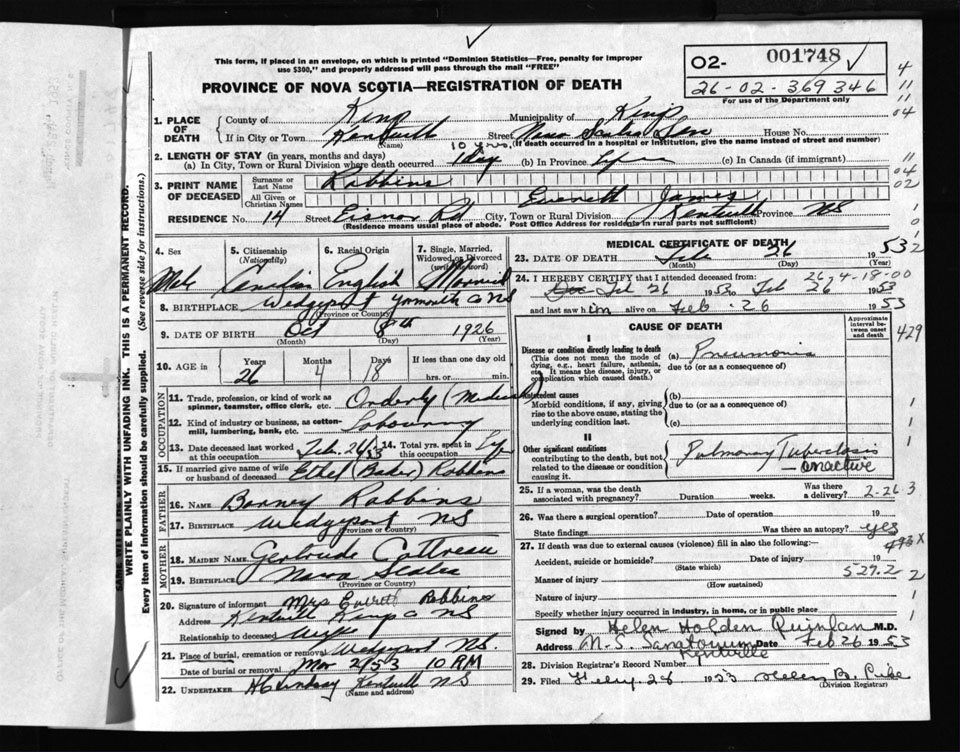 This form, if placed in an envelope, on which is printed "Dominion Statistics—Free, penalty for improper
use $300," and properly addressed will pass through the mail "FREE"
PROVINCE OF NOVA SCOTIA—REGISTRATION OF DEATH
O2- 001748
26-02-369346
For use of the Department only
1. PLACE OF DEATH
County of Kings Municipality of Kings
If in City or Town Kentville Street Nova Scotia San House No.
(Name) (If death occurred in a hospital or institution, give the name instead of street and number)
2. LENGTH OF STAY (in years, months and days) 10 yrs.
(a) In City, Town or Rural Division where death occurred 1 day (b) In Province Life (c) In Canada (if immigrant)
3. PRINT NAME OF DECEASED
Surname or Last Name Robbins
All Given or Christian Names Everett James
RESIDENCE No. 14 Street Eisnor Rd City, Town or Rural Division Kentville Province NS
(Residence means usual place of abode. Post Office Address for residents in rural parts not sufficient)
4. Sex Male
5. Citizenship (Nationality) Canadian
6. Racial Origin English
7. Single, Married, Widowed or Divorced (write the word) Married
8. BIRTHPLACE Wedgeport Yarmouth Co NS
(Province or Country)
9. DATE OF BIRTH Oct 8th 1926
(Month) (Day) (Year)
10. AGE in Years 26 Months 4 Days 18 If less than one day old
hrs. or min.
OCCUPATION
11. Trade, profession, or kind of work as spinner, teamster, office clerk, etc. Orderly (Medical)
12. Kind of industry or business, as cotton-mill, lumbering, bank, etc. Labouring
13. Date deceased last worked at this occupation Feb. 26/53 14. Total yrs. spent in this occupation
15. If married give name of wife or husband of deceased Ethel (Baker) Robbins
FATHER
16. NAME Barney Robbins
17. BIRTHPLACE Wedgeport NS
(Province or Country)
MOTHER
18. MAIDEN NAME Gertrude Cottreau
19. BIRTHPLACE Nova Scotia
(Province or Country)
20. Signature of informant Mrs Everett Robbins
Address Kentville Kings Co NS
Relationship to deceased Wife
21. Place of burial, cremation or removal Wedgeport NS.
Date of burial or removal Mar 2/53
22. UNDERTAKER Lindsay Kentville NS
(Name and address)
MEDICAL CERTIFICATE OF DEATH
23. DATE OF DEATH Feb 26 1953
(Month) (Day) (Year)
26-4-18-00
24. I HEREBY CERTIFY that I attended deceased from:
Feb 26 1953 to Feb 26 1953
and last saw him alive on Feb. 26 1953
CAUSE OF DEATH
Approximate interval between onset and death
I
Disease or condition directly leading to death (a) Pneumonia
(This does not mean the mode of dying, e.g., heart failure, asthenia, etc. It means the disease, injury, or complication which caused death.)
due to (or as a consequence of)
Antecedent causes (b)
Morbid conditions, if any, giving rise to the above cause, stating the underlying condition last.
due to (or as a consequence of)
(c)
II
Other significant conditions contributing to the death, but not related to the disease or condition causing it.
Pulmonary Tuberclosis
— inactive
25. If a woman, was the death associated with pregnancy? Duration weeks. Was there a delivery? 2-26-3
26. Was there a surgical operation? Date of operation 19
State findings Was there an autopsy? yes
27. If death was due to external causes (violence) fill in also the following:— 493X
Accident, suicide or homicide? Date of injury 19
(State which) 529.2
Manner of injury
(How sustained)
Nature of injury
Specify whether injury occurred in industry, in home, or in public place
Signed by Helen Holden Quinlan M.D.
Address N. S. Sanatorium Date Feb 26 1953
Kentville
28. Division Registrar's Record Number
29. Filed Feby. 28 1953 Helen B.
(Division Registrar)
WRITE PLAINLY WITH UNFADING INK. THIS IS A PERMANENT RECORD.
Every item of Information should be carefully supplied. (See reverse side for instructions.)
4
11
11
04
11
04
02
1
0
1
2
429
1
1
1
2
1
1